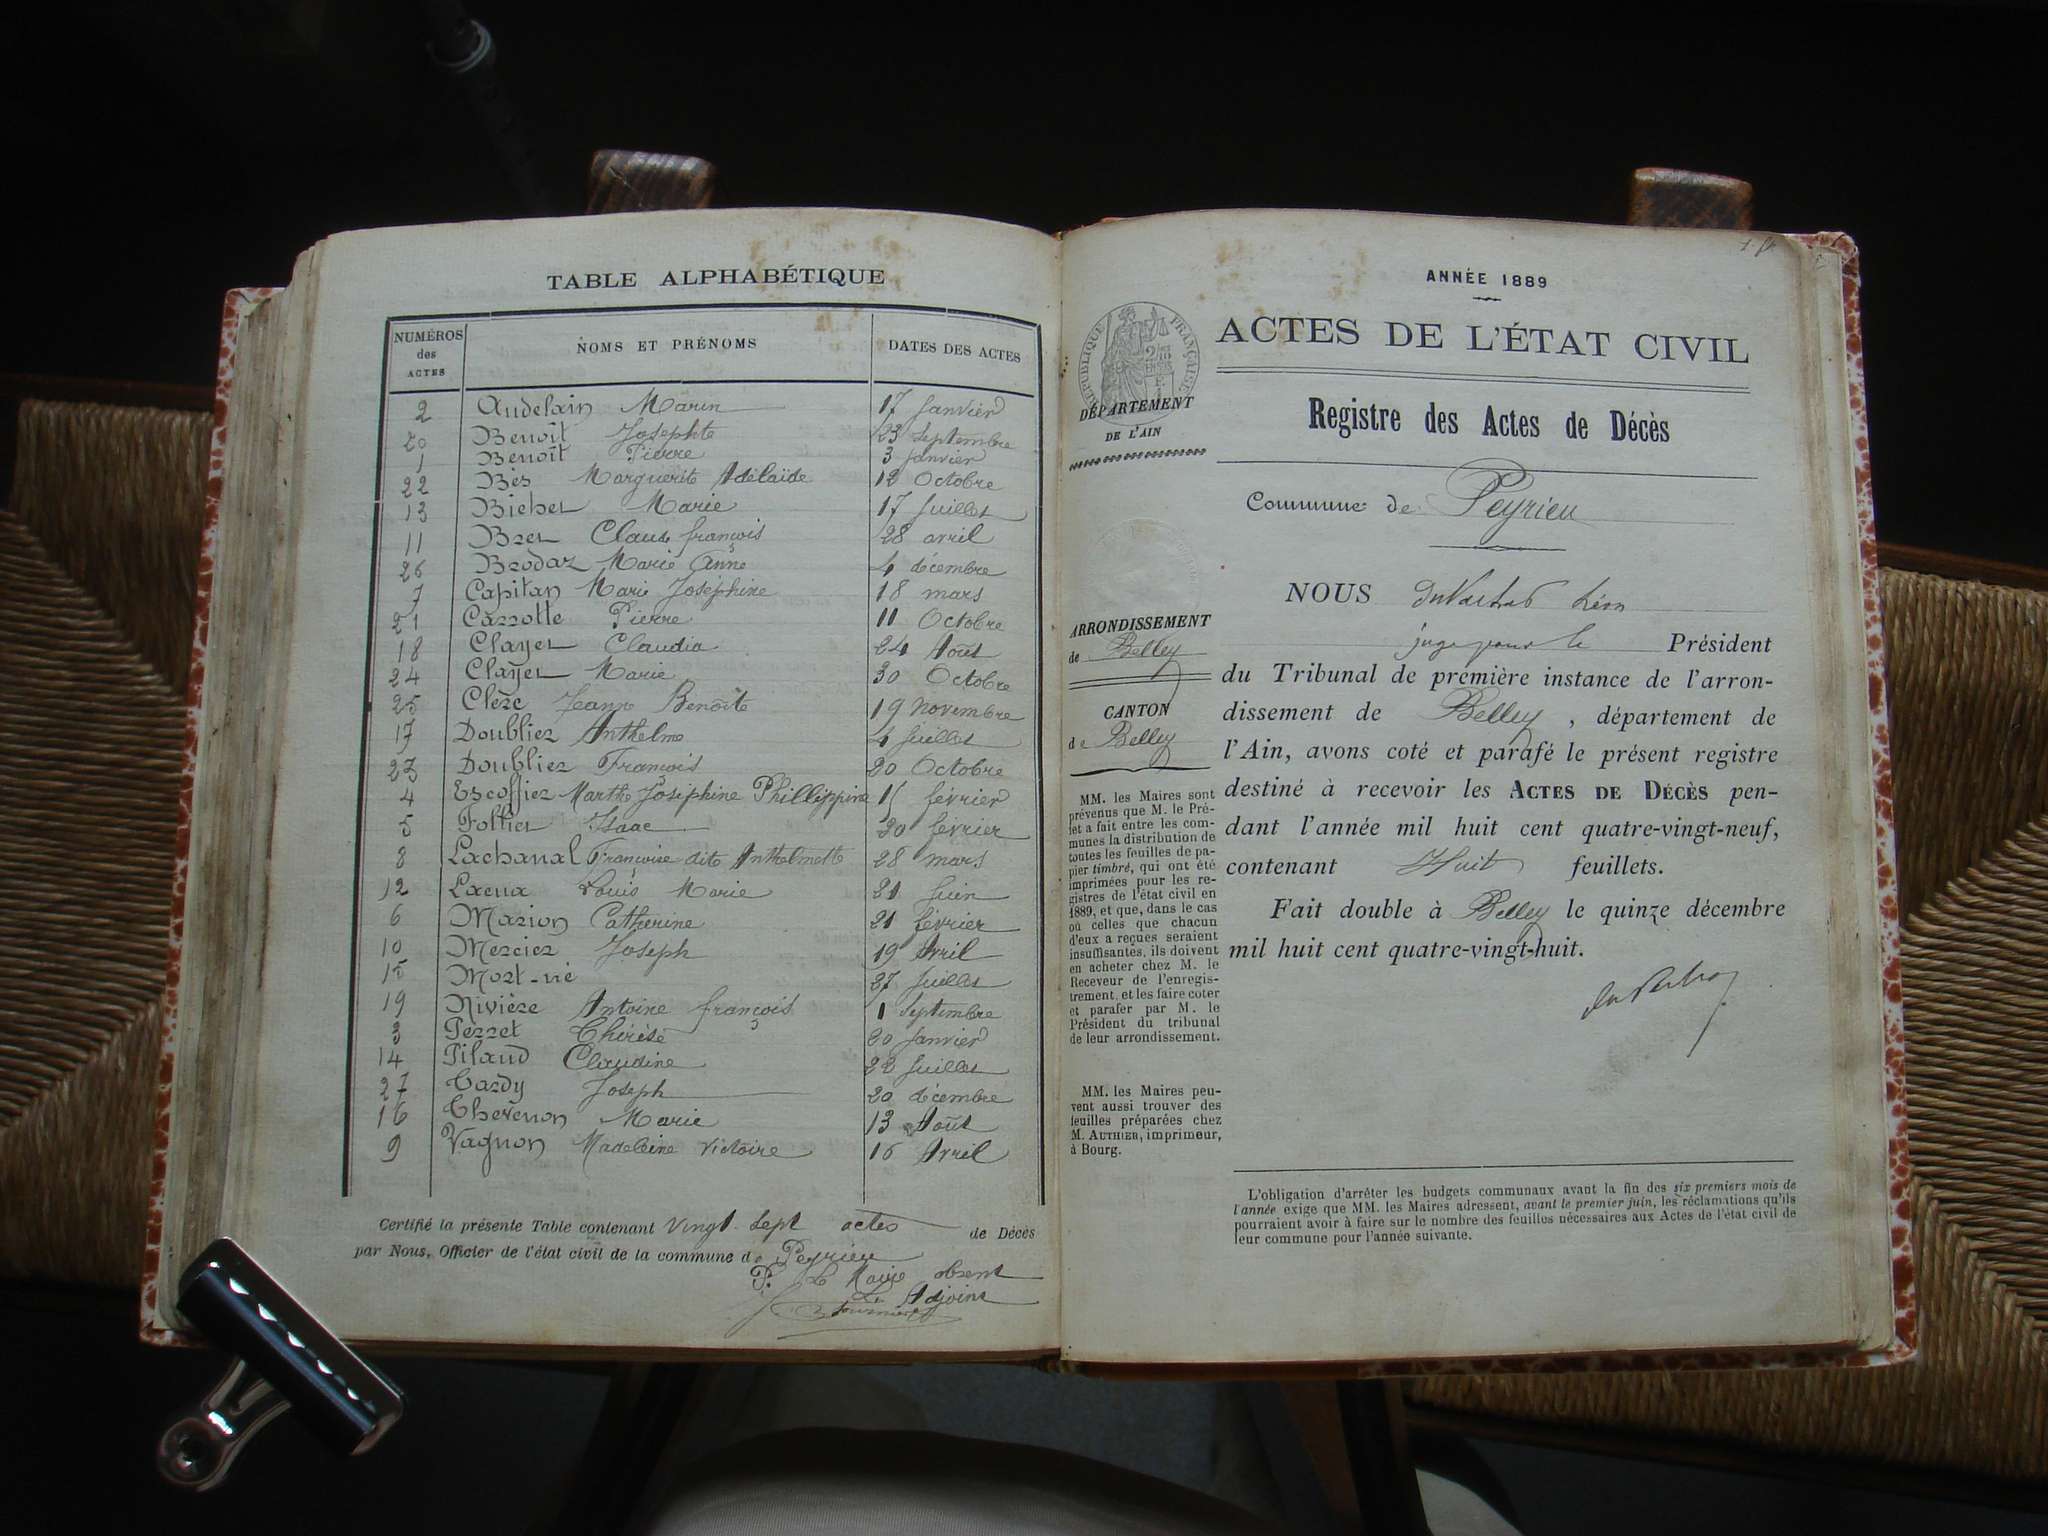 TABLE ALPHABÉTIQUE
NUMÉROS des ACTES NOMS ET PRÉNOMS DATES DES ACTES
2 Audelain Marin 17 Janvier
20 Benoît Josephte 23 Septembre
1 Benoît Pierre 3 Janvier
22 Bès Marguerite Adélaïde 12 Octobre
13 Marie 17 Juillet
11 François 28 avril
26 Brodaz Marie Anne 4 décembre
7 Capitan Marie Joséphine 18 mars
21 Cazzotte Pierre 11 Octobre
18 Clayet Claudia 24 Août
24 Clayet Marie 30 Octobre
25 Clerc Jeanne Benoîte 19 novembre
17 Doublier Anthelme 4 Juillet
23 Doublier François 20 Octobre
4 Escoffier Marthe Joséphine Phillippine 11 février
5 Follier Isaac 20 février
8 Lachanal Françoise dite Anthelmette 28 mars
12 Louis Marie 21 Juin
6 Marion Catherine 21 février
10 Mercier Joseph 19 Avril
15 Mort-né 27 Juillet
19 Rivière Antoine françois 1 Septembre
3 Perret Thérèse 20 Janvier
14 Pilaud Claudine 22 Juillet
27 Tardy Joseph 20 décembre
16 Thevenon Marie 13 Août
9 Vagnon Madeleine Victoire 16 Avril
Certifié la présente Table contenant Vingt-sept actes de Décès
par Nous, Officier de l'état civil de la commune de Peyrieu
P. Le Maire absent
L'Adjoint
ANNÉE 1889
ACTES DE L'ÉTAT CIVIL
RÉPUBLIQUE FRANÇAISE
DÉPARTEMENT
DE L'AIN
Registre des Actes de Décès
Commune de Peyrieu
NOUS Léon
juge pour le Président
du Tribunal de première instance de l'arron-
dissement de Belley, département de
l'Ain, avons coté et parafé le présent registre
destiné à recevoir les ACTES DE DÉCÈS pen-
dant l'année mil huit cent quatre-vingt-neuf,
contenant Huit feuillets.
Fait double à Belley le quinze décembre
mil huit cent quatre-vingt-huit.
ARRONDISSEMENT
de Belley
CANTON
de Belley
MM. les Maires sont
prévenus que M. le Pré-
fet a fait entre les com-
munes la distribution de
toutes les feuilles de pa-
pier timbré, qui ont été
imprimées pour les re-
gistres de l'état civil en
1889, et que, dans le cas
où celles que chacun
d'eux a reçues seraient
insuffisantes, ils doivent
en acheter chez M. le
Receveur de l'enregis-
trement, et les faire coter
et parafer par M. le
Président du tribunal
de leur arrondissement.
MM. les Maires peu-
vent aussi trouver des
feuilles préparées chez
M. AUTHIER, imprimeur,
à Bourg.
L'obligation d'arrêter les budgets communaux avant la fin des six premiers mois de
l'année exige que MM. les Maires adressent, avant le premier juin, les réclamations qu'ils
pourraient avoir à faire sur le nombre des feuilles nécessaires aux Actes de l'état civil de
leur commune pour l'année suivante.